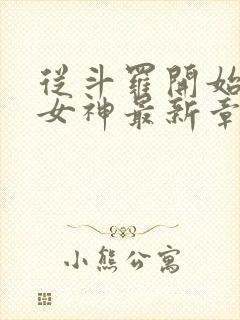 從斗羅開始
女神最新章
小熊公寓